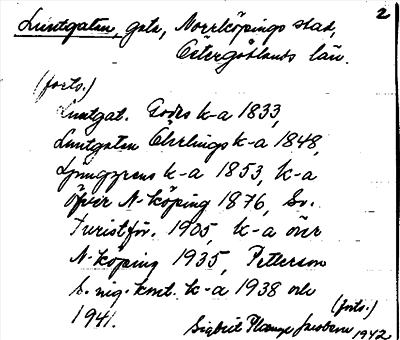 2
Luntgatan, gata, Norrköpings stad,
Östergötlands län.
(forts.)
Luntgat. Godes k-a 1833,
Luntgatan Öhrlings k-a 1848,
Ljunggrens k-a 1853, k-a
över N-köping 1876, Sv.
Turistför. 1905, k-a över
N-köping 1935, Petterson
k-a 1938 och
(forts.)
1941.
Sigbrit Plænge Jacobson 1942